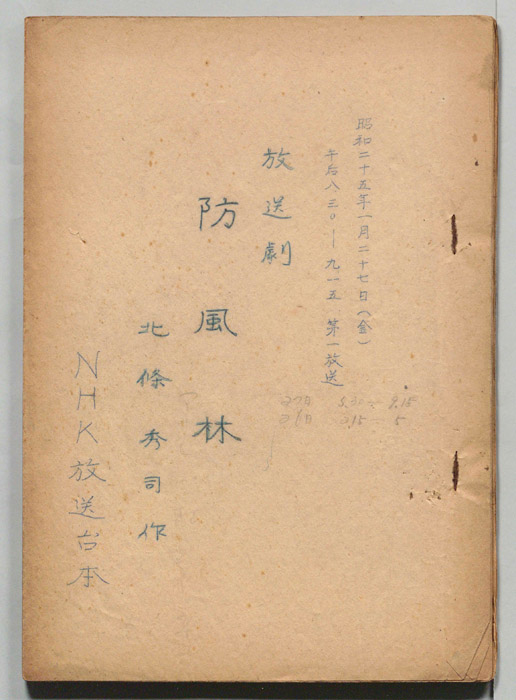 昭和二十五年一月二十七日(金)
午后八、三〇ー九、一五 第一放送
放送劇
防風林
北條秀司作
NHK放送台本